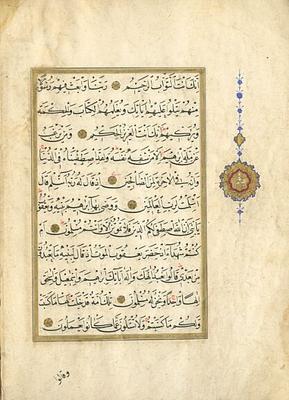 اِنَّكَ اَنْتَ التَّوَّابُ الرَّحِيمُ رَبَّنَا وَابْعَثْ فِيهِمْ رَسُولًا
مِنْهُمْ يَتْلُو عَلَيْهِمْ اٰيَاتِكَ وَيُعَلِّمُهُمُ الْكِتَابَ وَالْحِكْمَةَ
وَيُزَكِّيهِمْ اِنَّكَ اَنْتَ الْعَزِيزُ الْحَكِيمُ وَمَنْ يَرْغَبُ
عَنْ مِلَّةِ اِبْرٰهِيمَ اِلَّا مَنْ سَفِهَ نَفْسَهُ وَلَقَدِ اصْطَفَيْنَاهُ فِي الدُّنْيَا
وَاِنَّهُ فِي الْاٰخِرَةِ لَمِنَ الصَّالِحِينَ اِذْ قَالَ لَهُ رَبُّهُ اَسْلِمْ قَالَ
اَسْلَمْتُ لِرَبِّ الْعَالَمِينَ وَوَصّٰى بِهَا اِبْرٰهِيمُ بَنِيهِ وَيَعْقُوبُ
يَا بَنِيَّ اِنَّ اللّٰهَ اصْطَفٰى لَكُمُ الدِّينَ فَلَا تَمُوتُنَّ اِلَّا وَاَنْتُمْ مُسْلِمُونَ اَمْ
كُنْتُمْ شُهَدَاءَ اِذْ حَضَرَ يَعْقُوبَ الْمَوْتُ اِذْ قَالَ لِبَنِيهِ مَا تَعْبُدُونَ
مِنْ بَعْدِي قَالُوا نَعْبُدُ اِلٰهَكَ وَاِلٰهَ اٰبَائِكَ اِبْرٰهِيمَ وَاِسْمٰعِيلَ وَاِسْحٰقَ
اِلٰهًا وَاحِدًا وَنَحْنُ لَهُ مُسْلِمُونَ تِلْكَ اُمَّةٌ قَدْ خَلَتْ لَهَا مَا كَسَبَتْ
وَلَكُمْ مَا كَسَبْتُمْ وَلَا تُسْـَٔلُونَ عَمَّا كَانُوا يَعْمَلُونَ
وقالوا